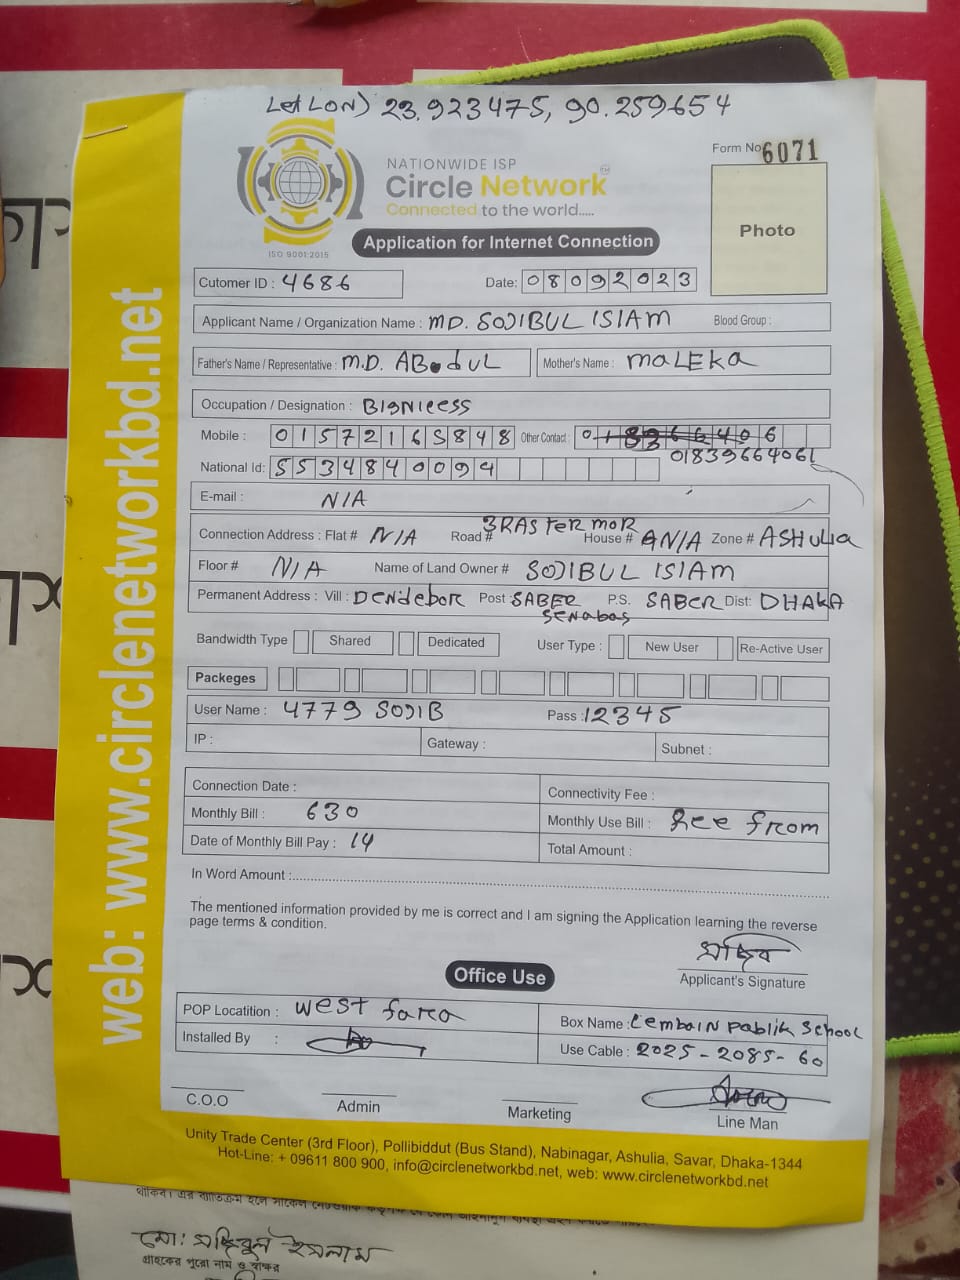 Let LON) 23.923475, 90.259654
Form No 6071
NATIONWIDE ISP
Circle Network TM
Connected to the world.....
ISO 9001:2015
Application for Internet Connection
Photo
Cutomer ID : 4686 Date: 08092023
Applicant Name / Organization Name : MD. SOJIBUL ISIAM Blood Group :
Father's Name / Representative : M.D. ABodUL Mother's Name : MALEKA
Occupation / Designation : BIGNIEESS
Mobile : 01572165848 Other Contact :
01839664061
National Id: 5534840094
E-mail : N/A
Connection Address : Flat # N/A Road # 3RASTER MOR House # N/A Zone # ASHULIA
Floor # N/A Name of Land Owner # SOJIBUL ISIAM
Permanent Address : Vill : DENdEBOR Post : SABER SENabas P.S. SABER Dist: DHAKA
Bandwidth Type Shared Dedicated User Type : New User Re-Active User
Packeges
User Name : 4779 SOJIB Pass : 12345
IP : Gateway : Subnet :
Connection Date : Connectivity Fee :
Monthly Bill : 630 Monthly Use Bill : from
Date of Monthly Bill Pay : 14 Total Amount :
In Word Amount :
The mentioned information provided by me is correct and I am signing the Application learning the reverse
page terms & condition.
সজিব
Applicant's Signature
Office Use
POP Locatition : west fara Box Name : Lembain Pablik School
Installed By : Use Cable : 2025-2085-60
C.O.O Admin Marketing Line Man
Unity Trade Center (3rd Floor), Pollibiddut (Bus Stand), Nabinagar, Ashulia, Savar, Dhaka-1344
Hot-Line: + 09611 800 900, info@circlenetworkbd.net, web: www.circlenetworkbd.net
web: www.circlenetworkbd.net
মো: সজিবুল ইসলাম
গ্রাহকের পুরো নাম ও স্বাক্ষর